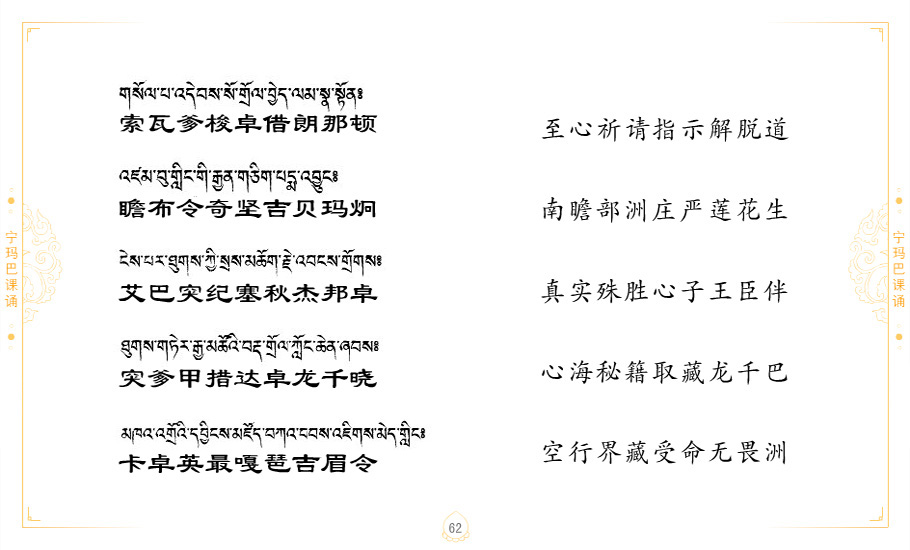 宁玛巴课诵
གསོལ་པ་འདེབས་སོ་གྲོལ་བྱེད་ལམ་སྣ་སྟོན༔
索瓦爹梭卓借朗那顿
至心祈请指示解脱道
འཛམ་བུ་གླིང་གི་རྒྱན་གཅིག་པདྨ་འབྱུང༔
瞻布令奇坚吉贝玛炯
南瞻部洲庄严莲花生
ངེས་པར་ཐུགས་ཀྱི་སྲས་མཆོག་རྗེ་འབངས་གྲོགས༔
艾巴突纪塞秋杰邦卓
真实殊胜心子王臣伴
ཐུགས་གཏེར་རྒྱ་མཚོའི་བརྡ་གྲོལ་ཀློང་ཆེན་ཞབས༔
突爹甲措达卓龙千晓
心海秘籍取藏龙千巴
མཁའ་འགྲོའི་དབྱིངས་མཛོད་བཀའ་བབས་འཇིགས་མེད་གླིང༔
卡卓英最嘎琶吉眉令
空行界藏受命无畏洲
宁玛巴课诵
62